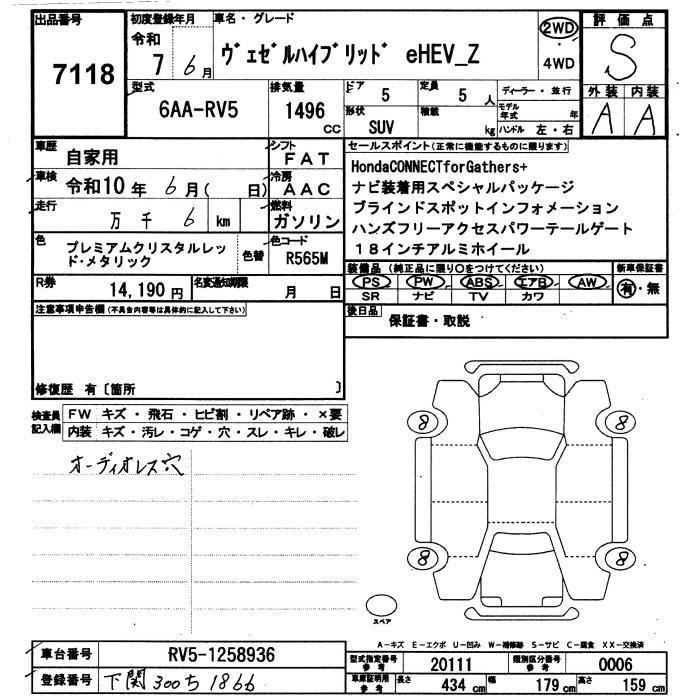 出品番号 7118
初度登録年月 令和 7 6月
車名・グレード ヴェゼルハイブリッド eHEV_Z
2WD ・ 4WD
評価点 S
型式 6AA-RV5
排気量 1496 CC
ドア 5
定員 5 人
形状 SUV
積載 kg
ディーラー・並行
モデル年式 年
ハンドル 左・右
外装 内装
A A
車歴 自家用
シフト FAT
車検 令和10年 6月( 日)
冷房 AAC
走行 万 千 6 km
燃料 ガソリン
色 プレミアムクリスタルレッド・メタリック
色替
色コード R565M
R券 14,190円
名変通知期限 月 日
セールスポイント(正常に機能するものに限ります)
HondaCONNECTforGathers+
ナビ装着用スペシャルパッケージ
ブラインドスポットインフォメーション
ハンズフリーアクセスパワーテールゲート
18インチアルミホイール
装備品(純正品に限り○をつけてください)
新車保証書
PS PW ABS エアB AW
SR ナビ TV カワ
有・無
後日品 保証書・取説
注意事項申告欄(不具合内容等は具体的に記入して下さい)
修復歴 有〔箇所 〕
検査員記入欄
FW キズ・飛石・ヒビ割・リペア跡・×要
内装 キズ・汚レ・コゲ・穴・スレ・キレ・破レ
オーディオレス穴
8 8
8 8
スペア
A-キズ E-エクボ U-凹み W-補修跡 S-サビ C-腐食 XX-交換済
車台番号 RV5-1258936
型式指定番号参考 20111
類別区分番号参考 0006
登録番号 下関 300 ち 1866
車庫証明用参考 長さ 434 cm 幅 179 cm 高さ 159 cm